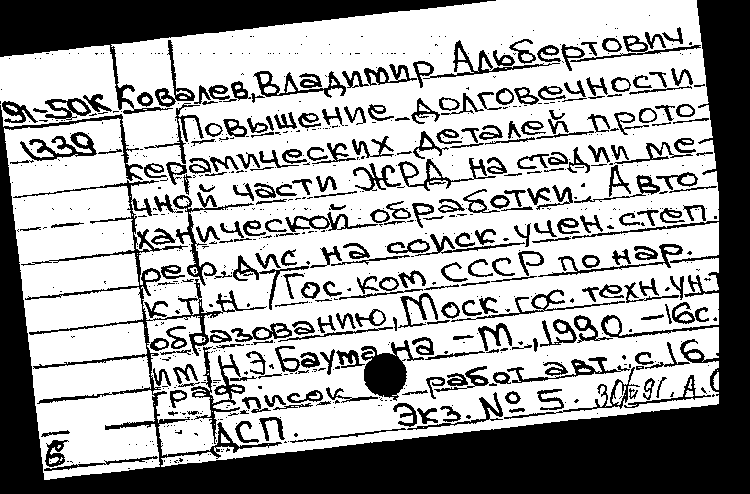 91-50К Ковалев, Владимир Альбертович.
1339 Повышение долговечности
керамических деталей прото-
чной части ЖРД на стадии ме-
ханической обработки: Авто-
реф. дис. на соиск. учен. степ.
к.т.н. /Гос. ком. СССР по нар.
образованию, Моск. гос. техн. ун-т
им. Н.Э. Баумана. -М., 1990. -16с.
граф.
Список работ авт.: с 16.
Экз. № 5.
ДСП.
б